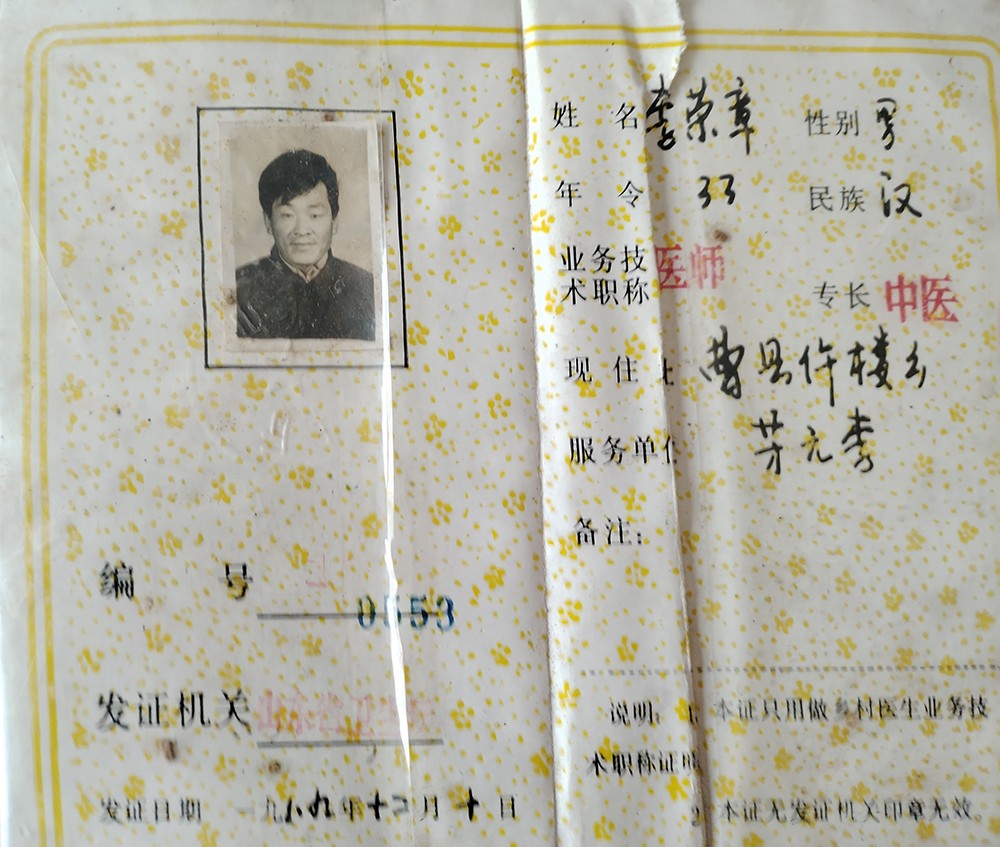 编 号 0553
发证机关 山东省卫生厅
发证日期 一九八九年十二月十日
姓 名 李荣章 性别 男
年 令 33 民族 汉
业务技
术职称 医师 专长 中医
现 住 曹县仵楼乡
服务单位 李
备注:
说明: 1 本证只用做乡村医生业务技
术职称证明
2 本证无发证机关印章无效。